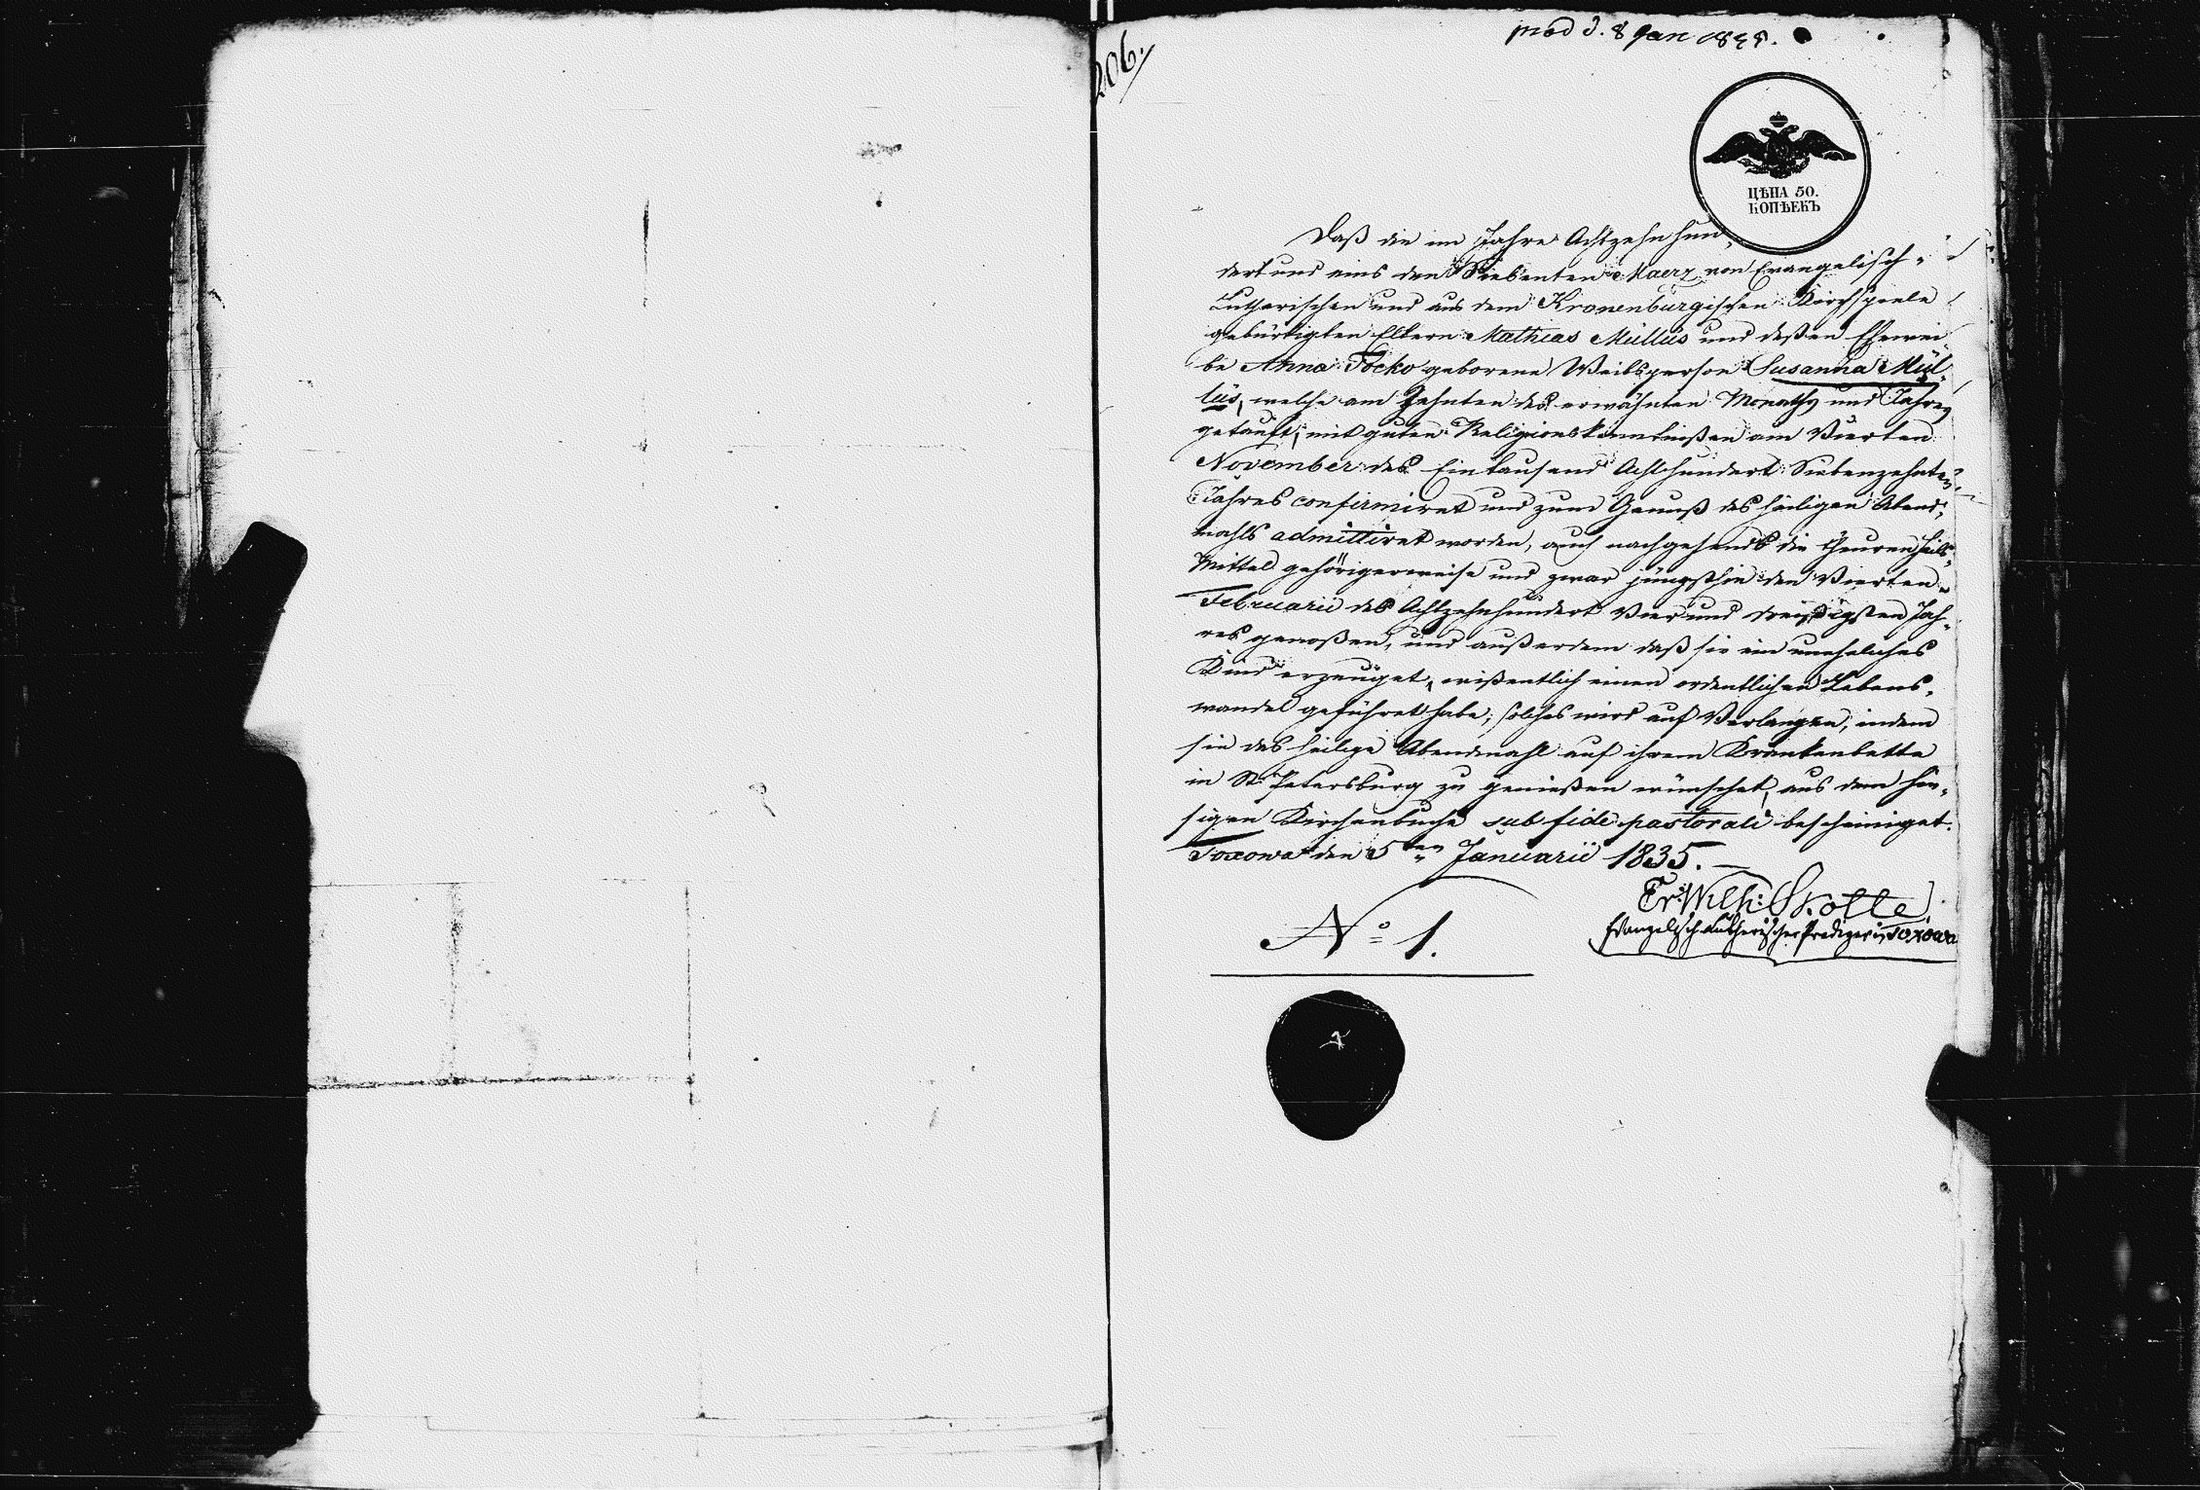 206.
prod d. 8 Jan 1835.
ЦѢНА 50.
КОПѢЕКЪ
Daß die im Jahre Achtzehnhun„
dert und eins den Siebenten Maerz von Evangelisch„
Lutherischen und aus dem Kronenburgischen Kirchspiele
gebürtigten Eltern Mathias Mullus und deßen Ehewei„
be Anna Tocko geborene Weibsperson Susanna Mül„
lüs, welche am Zehnten des erwähnten Monaths und Jahres
getauft, mit guten Religionskenntnißen am Vierten
November des Eintausend Achthundert Siebenzehnten
Jahres confirmiret und zum Genuß des heiligen Abend„
mahls admittiret worden, auch nachgehends die theuren Heils„
Mittel gehörigerweise und zwar jüngsthin den Vierten
Februarii des Achtzehnhundert Vier und dreißigsten Jah„
res genoßen, und außerdem daß sie ein uneheliches
Kind erzeuget, wißentlich einen ordentlichen Lebens„
wandel geführet habe; solches wird auf Verlangen, indem
sie das heilige Abendmahl auf ihrem Krankenbette
in St. Petersburg zu genießen wünschet, aus dem hie„
sigen Kirchenbuche sub fide pastorali bescheiniget.
Toxowa den 5ten Januarii 1835.
Fr: Wilh: Skotte,
Evangelisch Lutherischer Prediger in Toxowa
No 1.